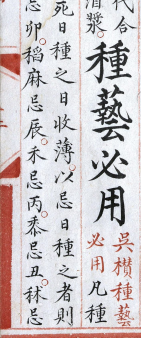 代合
酒漿。
種藝必用
吳欑種藝
必用凡種
死日種之日收薄以忌日種之者則
忌卯。稻麻忌辰。禾忌丙。黍忌丑。秫忌